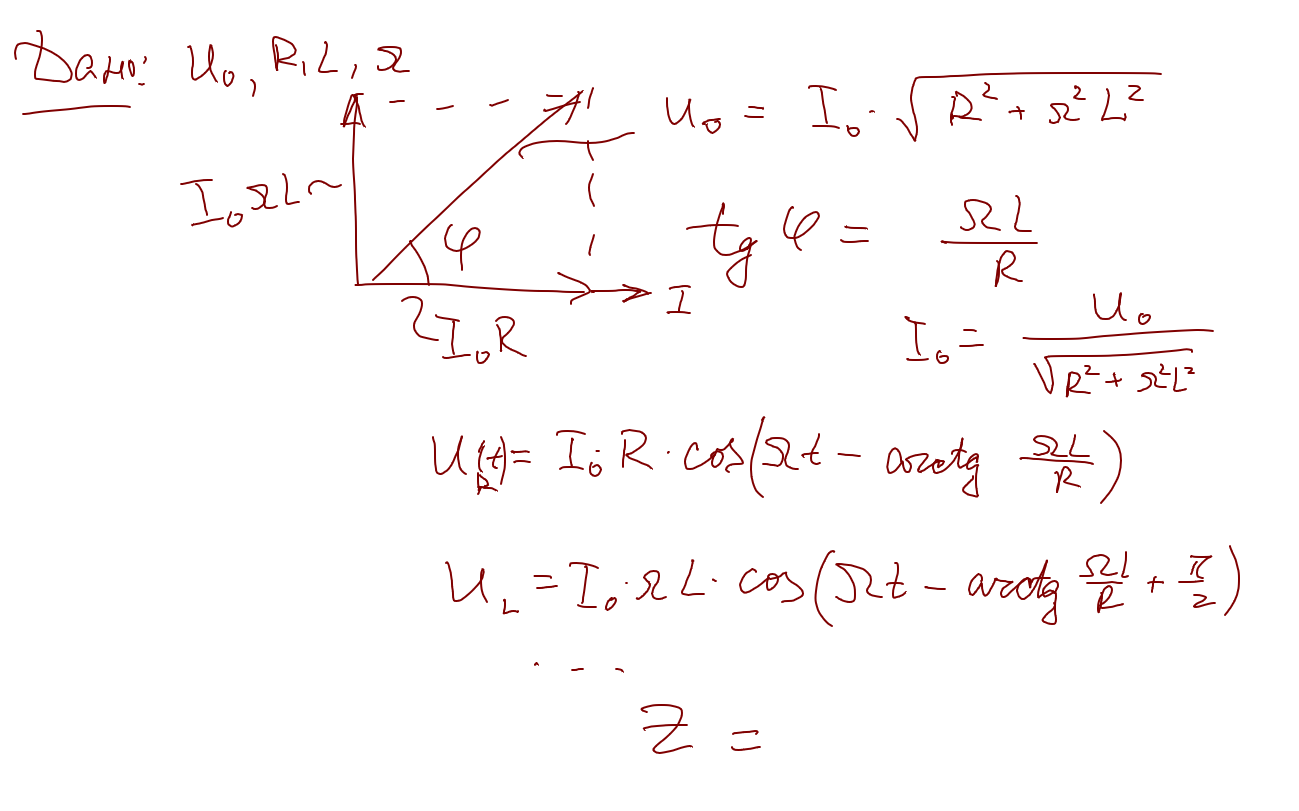 Дано: U₀, R, L, Ω
U₀ = I₀ · √(R² + Ω²L²)
I₀ΩL
φ
tg φ = ΩL/R
I
I₀R
I₀ = U₀/√(R² + Ω²L²)
U_R(t) = I₀ · R · cos(Ωt − arctg ΩL/R)
U_L = I₀ · ΩL · cos(Ωt − arctg ΩL/R + π/2)
. . .
Z =